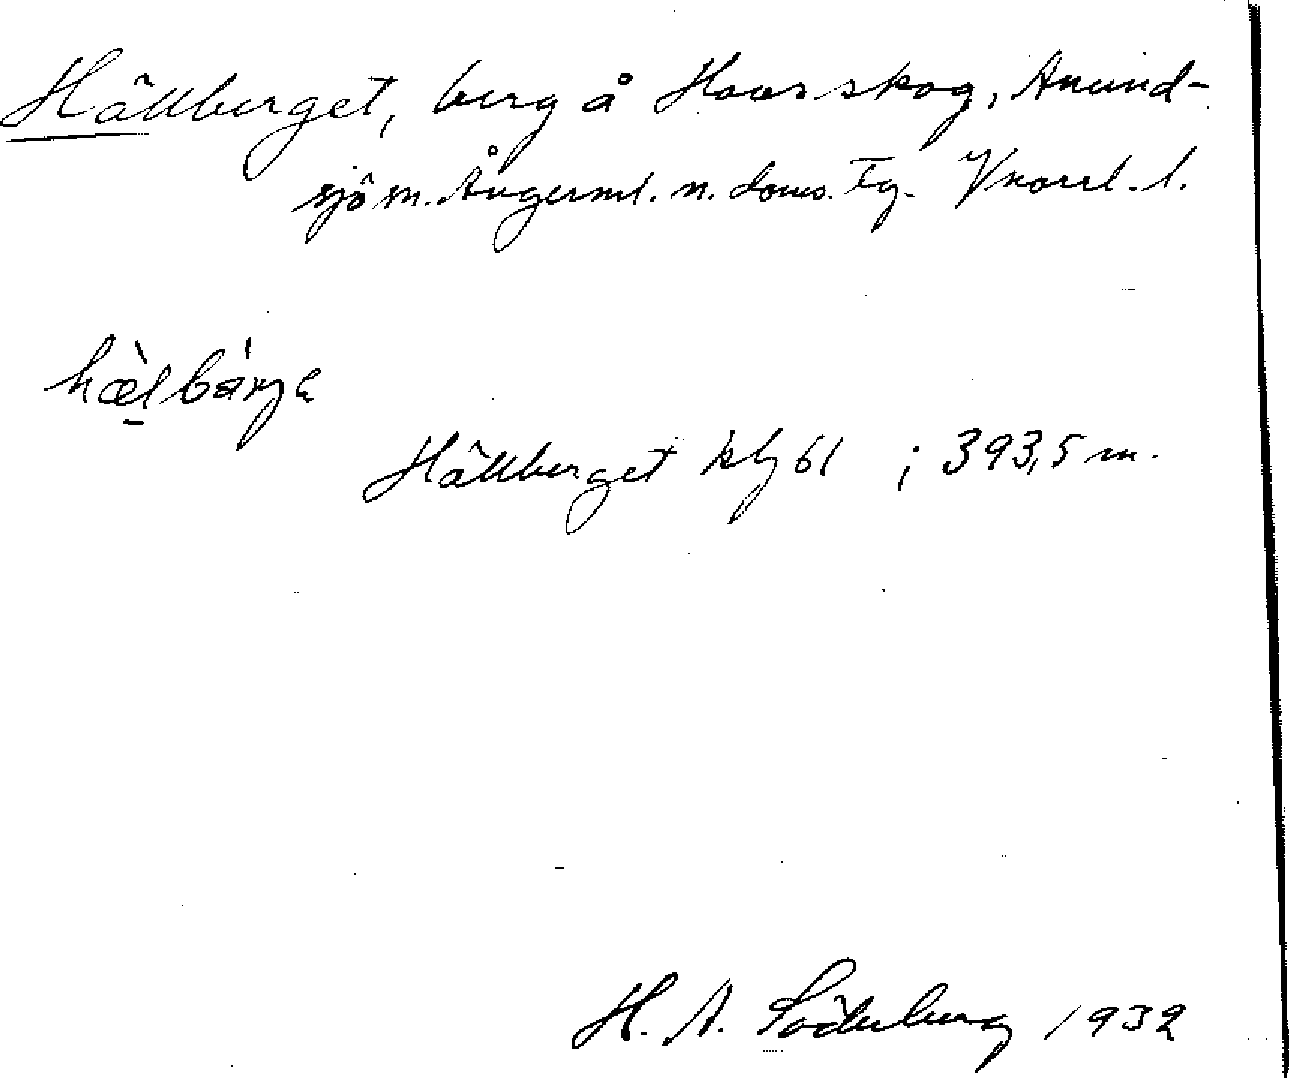 Hällberget, berg å Hoarskog, Anund-
sjö sn. Ångerml. n. doms. Tg. Vnorrl. l.
hæ̀lbárje
Hällberget kbl 61 ; 393,5 m.
H. A. Söderberg 1932